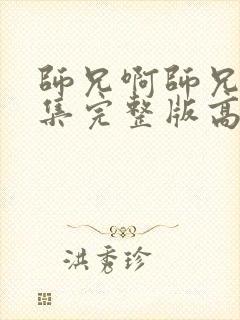 師兄啊師兄
集完整版高
洪秀珍